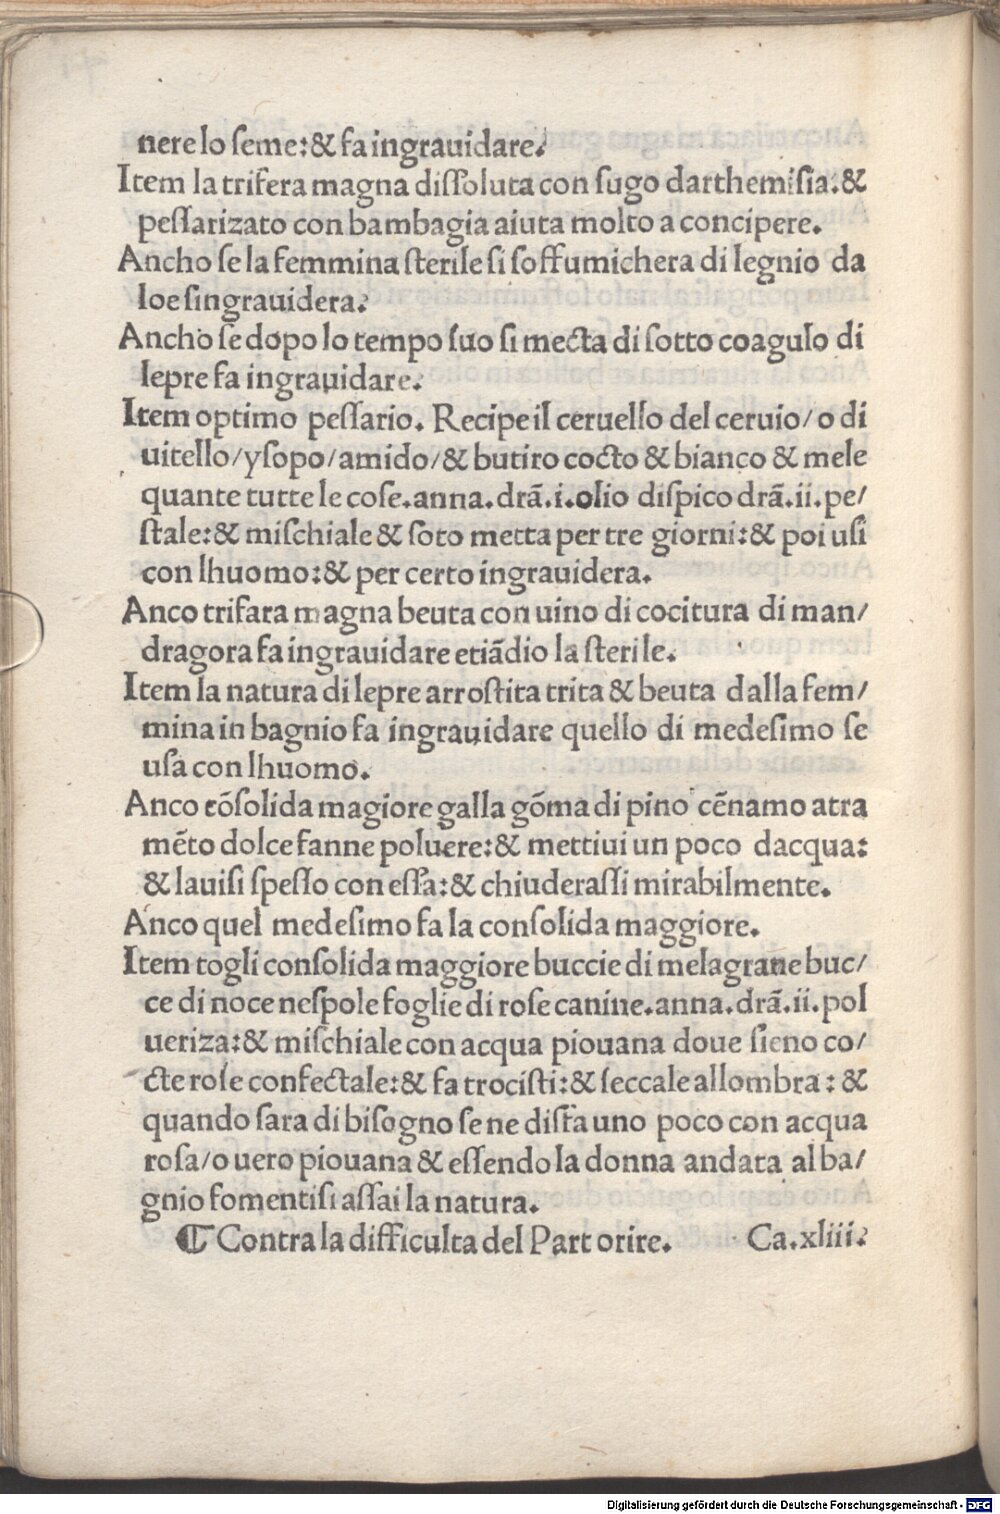 nere lo ſeme:& fa ingrauidare.
Item la trifera magna diſſoluta con ſugo darthemiſia:&
peſſarizato con bambagia aiuta molto a concipere.
Ancho ſe la femmina ſterile ſi ſoffumichera di legnio da
loe ſingrauidera.
Ancho ſe dopo lo tempo ſuo ſi mecta di ſotto coagulo di
lepre fa ingrauidare.
Item optimo peſſario. Recipe il ceruello del ceruio/o di
uitello/yſopo/amido/& butiro cocto & bianco & mele
quante tutte le coſe.anna.drã.i.olio diſpico drã.ii.pe/
ſtale:& miſchiale & ſoto metta per tre giorni:& poi uſi
con lhuomo:& per certo ingrauidera.
Anco trifara magna beuta con uino di cocitura di man/
dragora fa ingrauidare etiãdio la ſterile.
Item la natura di lepre arroſtita trita & beuta dalla fem/
mina in bagnio fa ingrauidare quello di medeſimo ſe
uſa con lhuomo.
Anco cõſolida magiore galla gõma di pino cẽnamo atra
mẽto dolce fanne poluere:& mettiui un poco dacqua:
& lauiſi ſpeſſo con eſſa:& chiuderaſſi mirabilmente.
Anco quel medeſimo fa la conſolida maggiore.
Item togli conſolida maggiore buccie di melagrane buc/
ce di noce neſpole foglie di roſe canine.anna.drã.ii.pol
ueriza:& miſchiale con acqua piouana doue ſieno co/
cte roſe confectale:& fa trociſti:& ſeccale allombra:&
quando ſara di biſogno ſe ne diſfa uno poco con acqua
roſa/o uero piouana & eſſendo la donna andata al ba/
gnio fomentiſi aſſai la natura.
¶ Contra la difficulta del Partorire. Ca.xliii.
Digitalisierung gefördert durch die Deutsche Forschungsgemeinschaft - DFG